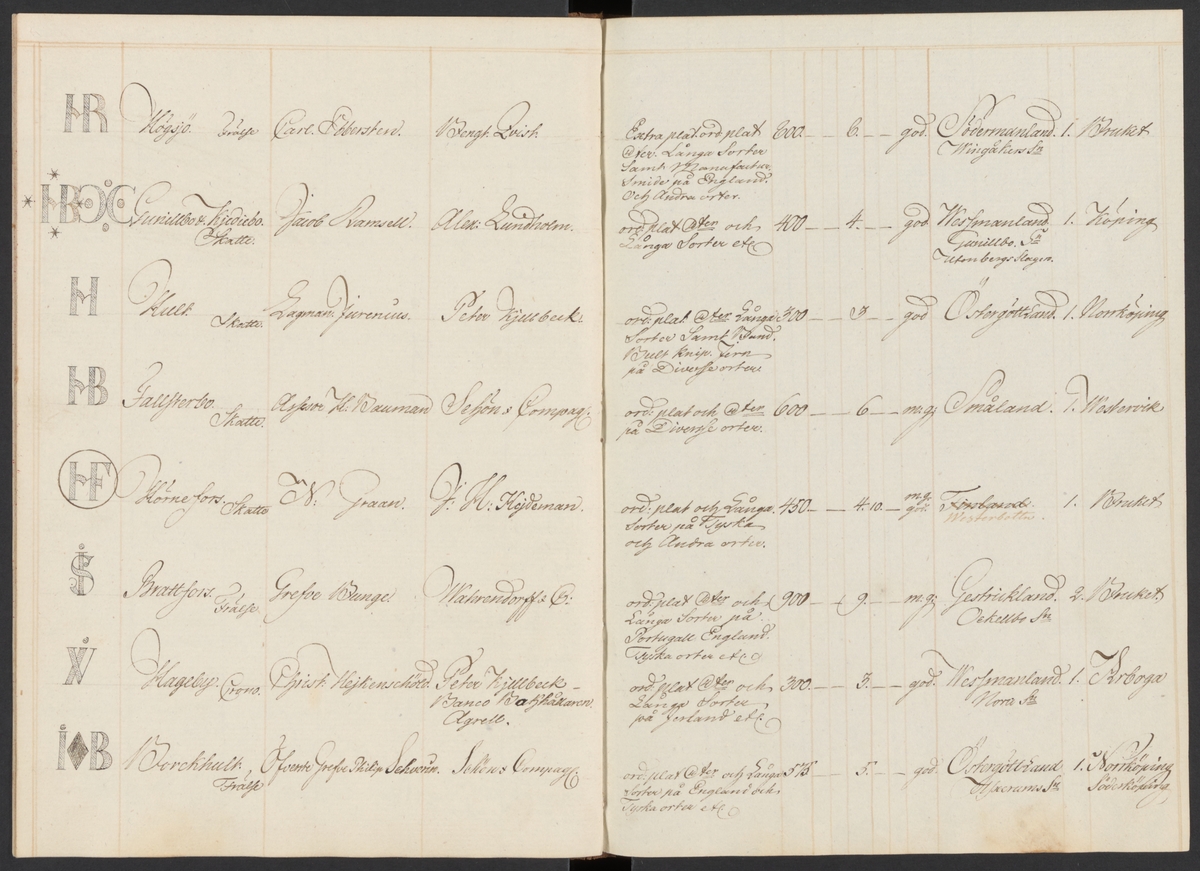 HR Högsjö. Frälse Carl Ebbersten. Bengt Qvist. Extra plat. ord plat 600 — 6. — god. Södermanland. 1. Bruket
@ter. Långa Sorter Wingåkers Sn
Samt Manufactur
Smide på England.
Och Andra orter.
HBOC Gunillbo & Kjedjebo. Jacob Ramsell. Alex: Lundholm. ord. plat @ter och 400 — 4. — god Westmanland 1. Köping
Skatte. Långa Sorter etc Gunillbo. Sn
Utersbergs Slagen.
H Hult. Skatte. Lagman Jurenius. Peter Kjellbeck. ord: plat. @ter Långa 300 — 3 — god Östergöttland. 1. Norrköping
Sorter Samt Band.
Bult Knip. Jern
på Diverse orter.
HB Fallsterbo. Skatte. Assess H: Bauman Schön & Compag: ord: plat och @ter 600 — 6 — m:g: Småland. 1. Westervik
på Diverse orter.
HF Hörnefors. Skatte N: Graan. J: H: Hejdeman. ord: plat och Långa 450 — 4. 10. m:g: god: Finland 1. Bruket
Sorter på Tyska Westerbotten
och Andra orter.
S Brattfors. Frälse Grefve Bunge. Wahrendorff & C: ord: plat @ter och 900 — 9. — m:g: Gestrickland. 2. Bruket
Långa Sorter på Ockelbo Sn
Portugall England.
Tyska orter etc
W Hageby. Crono. Christ: Hejkenschöld. Peter Kjellbeck — ord: plat @ter och 300 — 3. — god. Westmanland. 1. Arboga
Banco Långa Sorter Nora Sn
Agrell. på Jerland etc
I♦B Borckhult. Frälse Öfverste Grefve Philip Schverin. Schön & Compag: ord: plat @ter och Långa 575 — 5. — god: Östergöttland 1. Norrköping
Sorter på England och Söderköping
Tyska orter etc